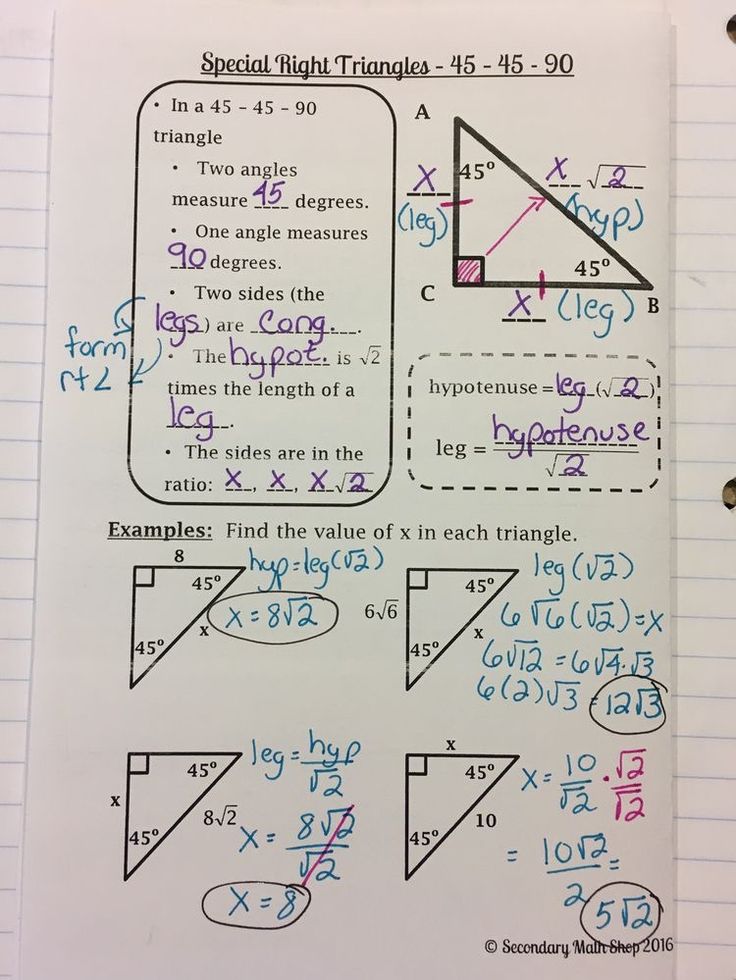 Special Right Triangles - 45 - 45 - 90
• In a 45 – 45 – 90
triangle
• Two angles
measure 45 degrees.
• One angle measures
90 degrees.
• Two sides (the
legs) are cong.
form
rt∠
• The hypot. is √2
times the length of a
leg.
• The sides are in the
ratio: x, x, x√2
A
45°
x
(leg)
x √2
(hyp)
45°
C
x (leg)
B
hypotenuse = leg (√2)
leg = hypotenuse
√2
Examples: Find the value of x in each triangle.
8
45°
x
45°
hyp=leg(√2)
x = 8√2
6√6
45°
x
45°
leg(√2)
6√6(√2)=x
6√12 = 6√4·√3
6(2)√3 = 12√3
x
45°
8√2
45°
leg = hyp
√2
x = 8√2
√2
x = 8
x
45°
10
45°
x = 10/√2 · √2/√2
= 10√2/2 =
5√2
© Secondary Math Shop 2016